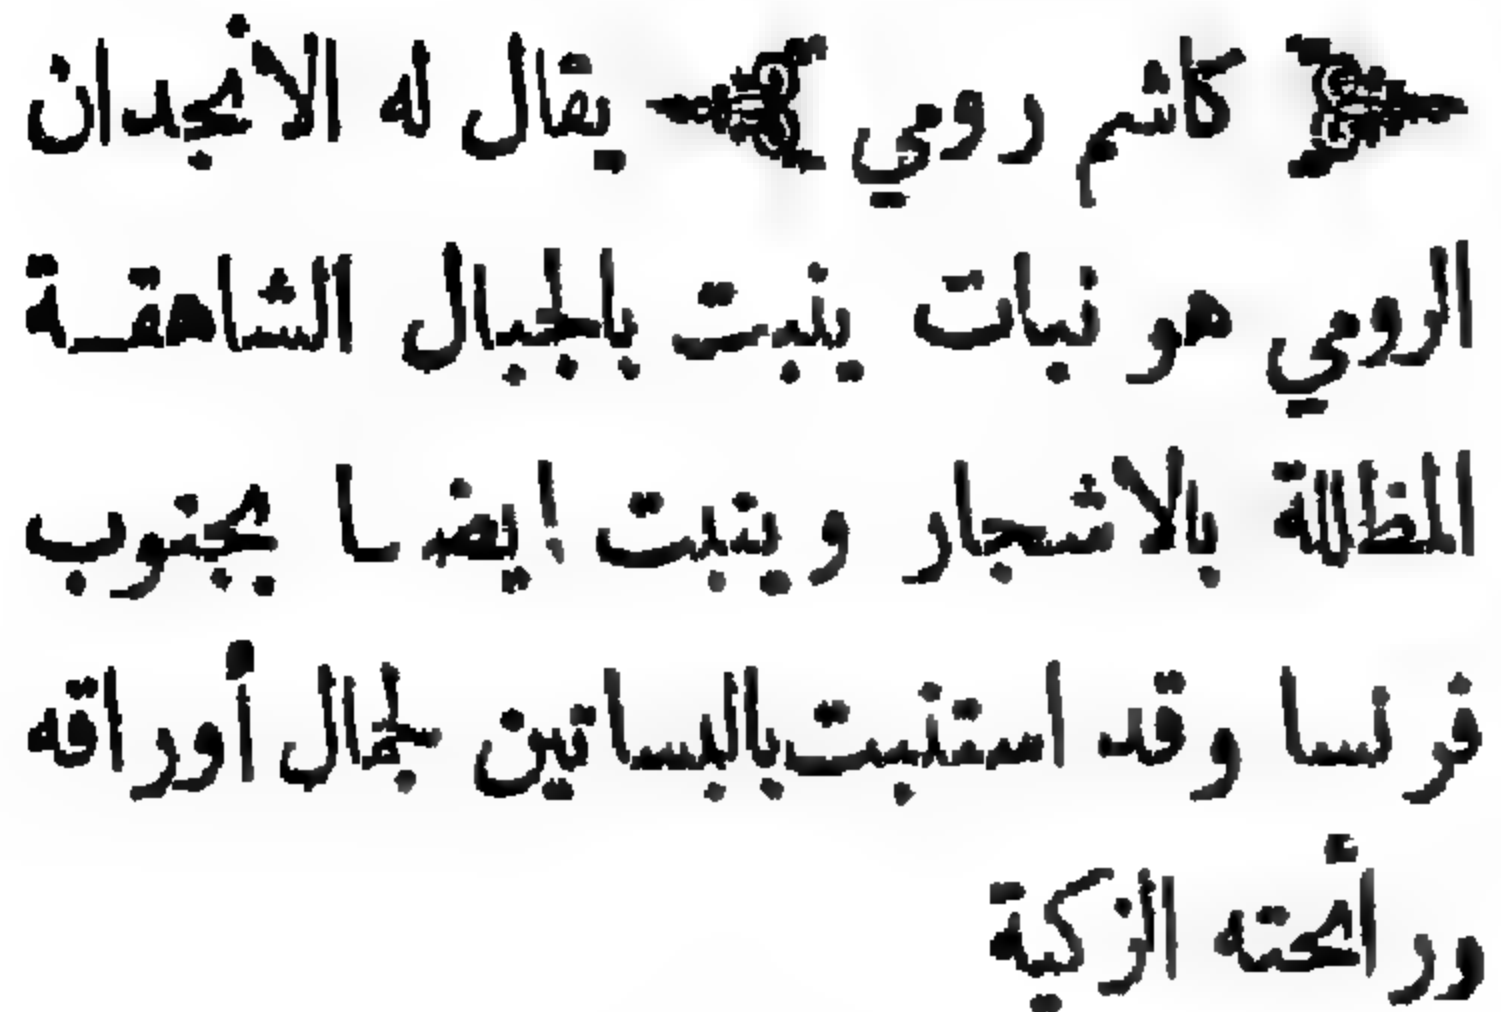 ﴿ كاشم رومي ﴾ يقال له الأنجدان
الرومي هو نبات ينبت بالجبال الشاهقـة
المظللة بالاشجار وينبت ايضـا بجنوب
فرنسا وقد استنبت بالبساتين لجمال أوراقه
ورأئحته الزكية